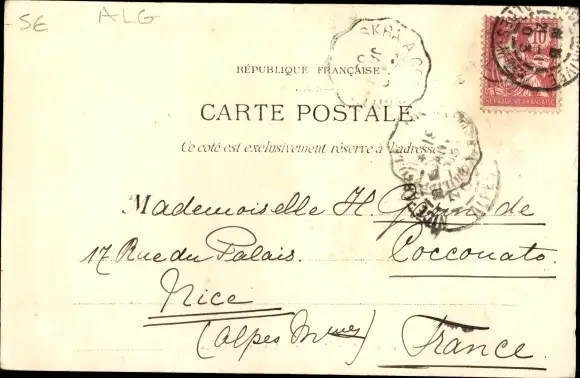 SE ALG
SKRA A CO
RÉPUBLIQUE FRANÇAISE
10
REPUBLIQUE FRANÇAISE
CARTE POSTALE
Ce coté est exclusivement réservé à l'adresse
Mademoiselle H. de
17 Rue du Palais. Cocconato
Nice
(Alpes Mmes) France.